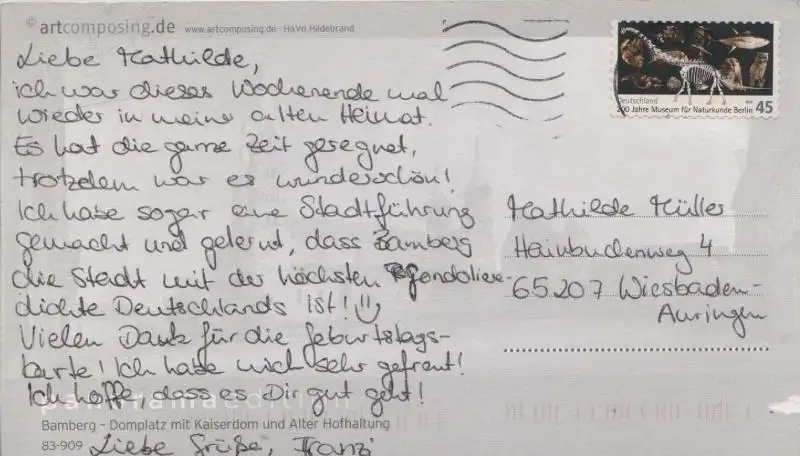 © artcomposing.de www.artcomposing.de · HaVo Hildebrand
Liebe Mathilde,
ich war dieses Wochenende mal
wieder in meiner alten Heimat.
Es hat die ganze Zeit geregnet,
trotzdem war es wunderschön!
Ich habe sogar eine Stadtführung
gemacht und gelernt, dass Bamberg
die Stadt mit der höchsten Gondoliere-
dichte Deutschlands ist!
Vielen Dank für die Geburtstags-
karte! Ich habe mich sehr gefreut!
Ich hoffe, dass es Dir gut geht!
Bamberg - Domplatz mit Kaiserdom und Alter Hofhaltung
83-909 Liebe Grüße, Franzi
Deutschland
200 Jahre Museum für Naturkunde Berlin 45
Mathilde Müller
Hainbuchenweg 4
65207 Wiesbaden-
Auringen